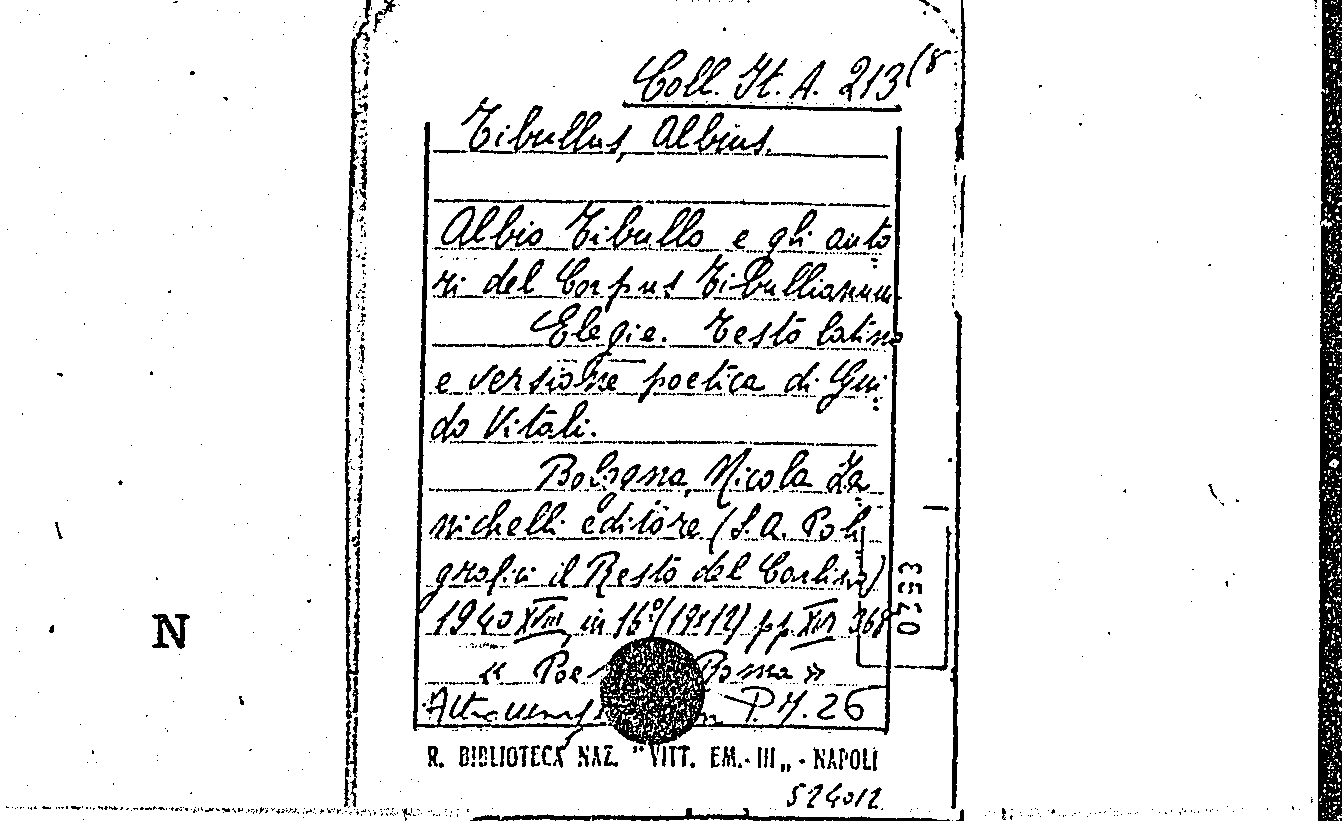 Coll. It. A. 213(8
Tibullus, Albius.
Albio Tibullo e gli auto
ri del Corpus Tibullianum.
Elegie. Testo latino
e versione poetica di Gui
do Vitali.
Bologna, Nicola Za
nichelli editore (S. A. Poli
grafici il Resto del Carlino)
1940 XVIII, in 16º (19x12) pp. 368
« Poe Roma »
P.Y. 26
R. BIBLIOTECA NAZ. "VITT. EM. - III„ - NAPOLI
524012
0353
N